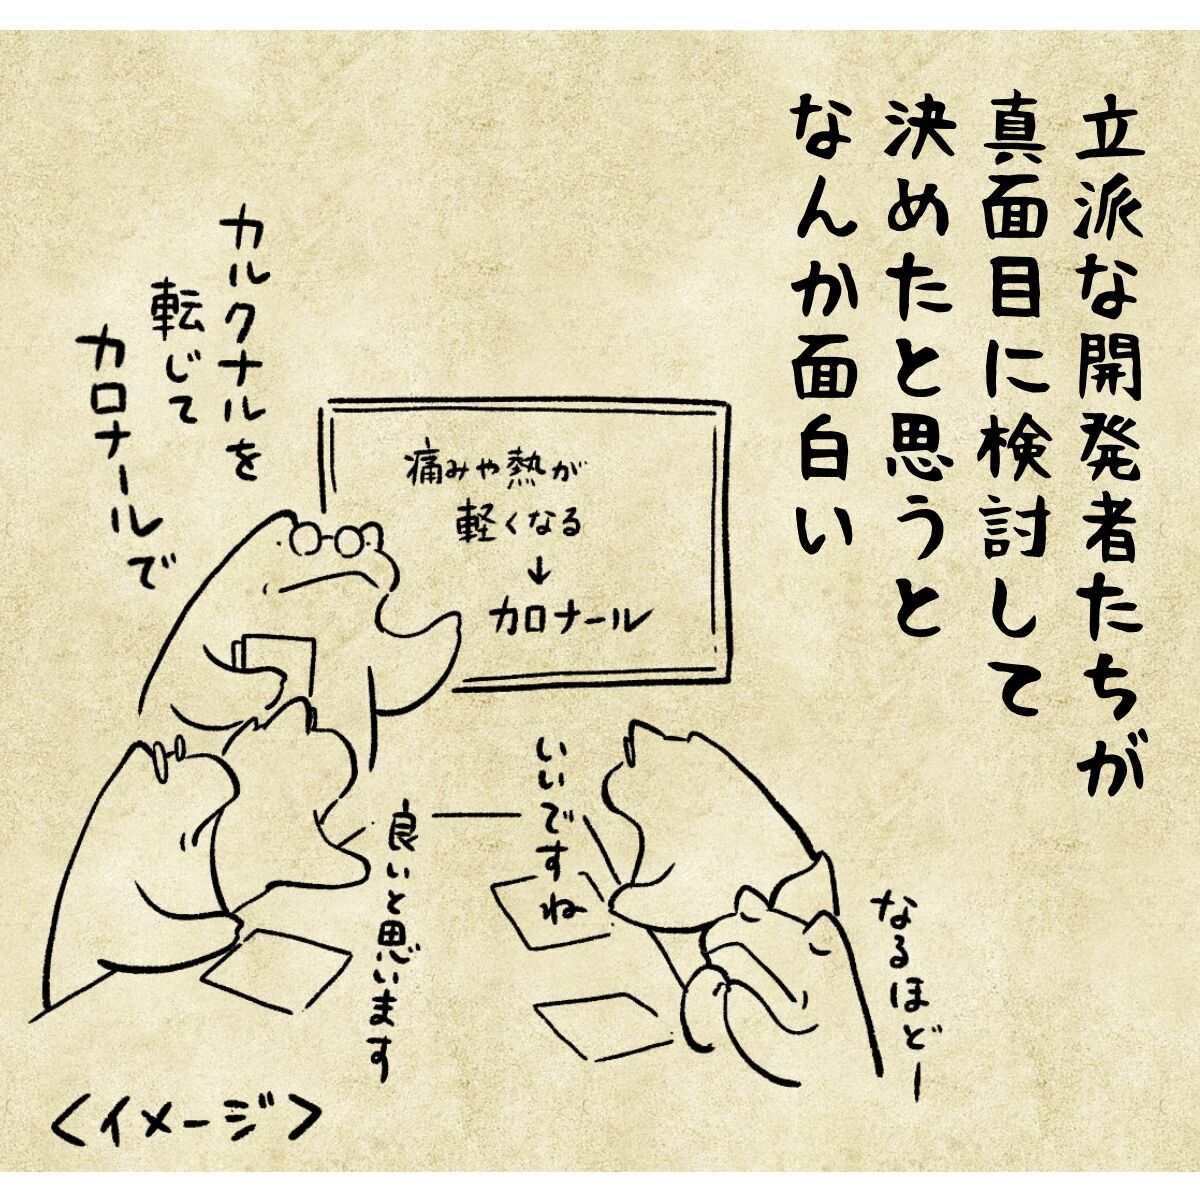 立派な開発者たちが
真面目に検討して
決めたと思うと
なんか面白い
痛みや熱が
軽くなる
↓
カロナール
カルクナルを
転じて
カロナールで
いいですね
良いと思います
なるほどー
<イメージ>